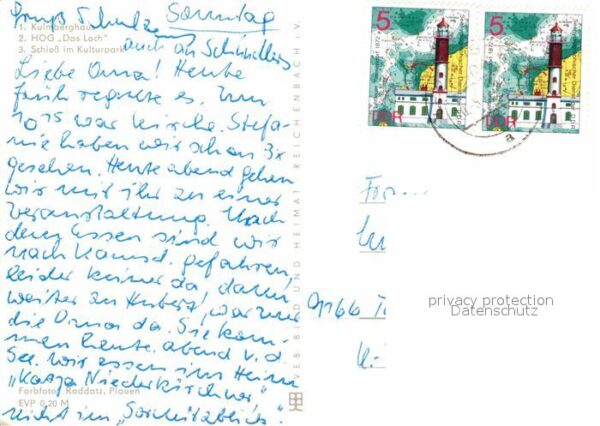 Gruß Schulze Sonntag
auch an Schüllers
1. Kulmberghaus
2. HOG „Das Loch"
3. Schloß im Kulturpark
Liebe Oma! Heute
früh regnete es. Um
10 15 war Kirche. Stefa-
nie haben wir schon 3x
gesehen. Heute abend gehen
wir mit ihr zu einer
Veranstaltung. Nach
dem Essen sind wir
nach gefahren,
leider keiner da, dann
weiter zu war nur
die Oma da. Sie kom-
men heute abend v. d.
See. Wir essen im Heim
„Katja Niederkirchner"
nicht im
Farbfoto: Raddatz, Plauen
EVP 0,20 M
VEB BILD UND HEIMAT REICHENBACH i. V.
5
DDR
5
DDR
9166
privacy protection
Datenschutz